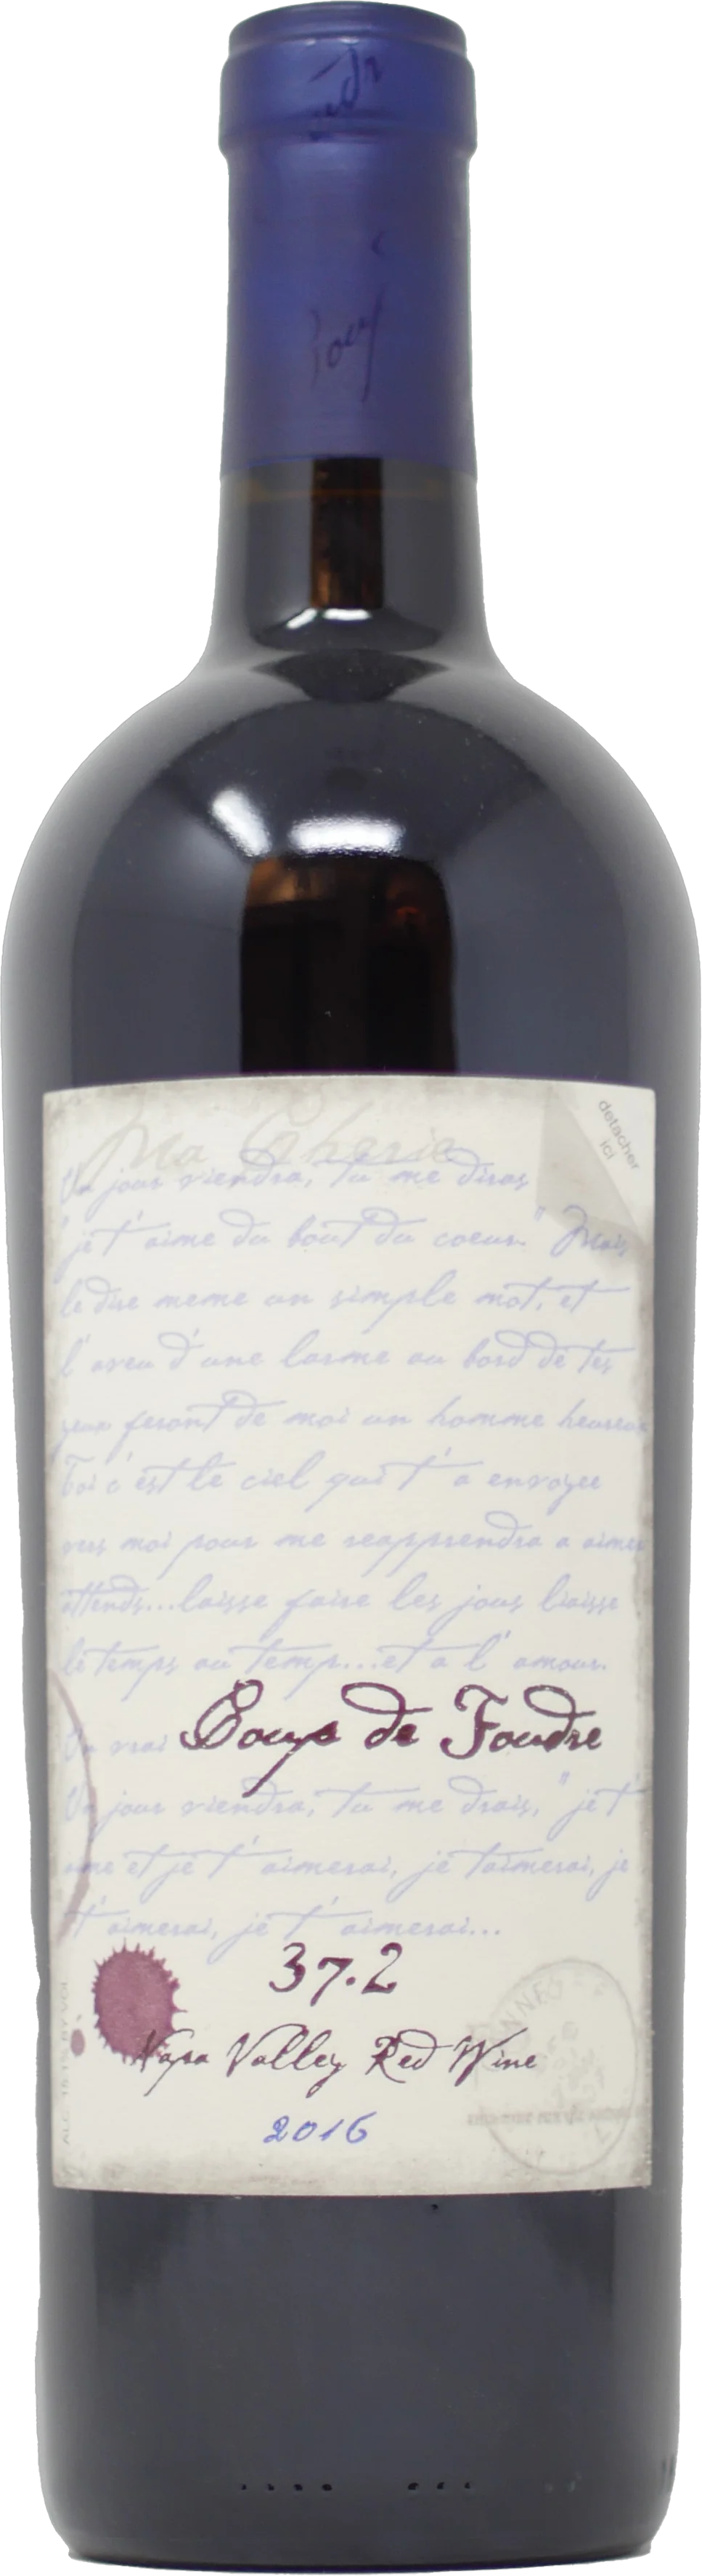 Ma Cherie
detacher
ici
Un jour viendra, tu me diras
"je t' aime du bout du coeur." Mais
le dire meme un simple mot, et
l' aveu d' une larme au bord de tes
yeux feront de moi un homme heureux
Toi c' est le ciel qui t' a envoyee
vers moi pour me reapprendra a aimer
attends...laisse faire les jous liaisse
le temps au temp...et a l' amour.
Un vrai Coup de Foudre
Un jour viendra, tu me drais, "je t'
ame et je t' aimerai, je taimerai, je
t' aimerai, je t' aimerai...
37.2
Napa Valley Red Wine
2016